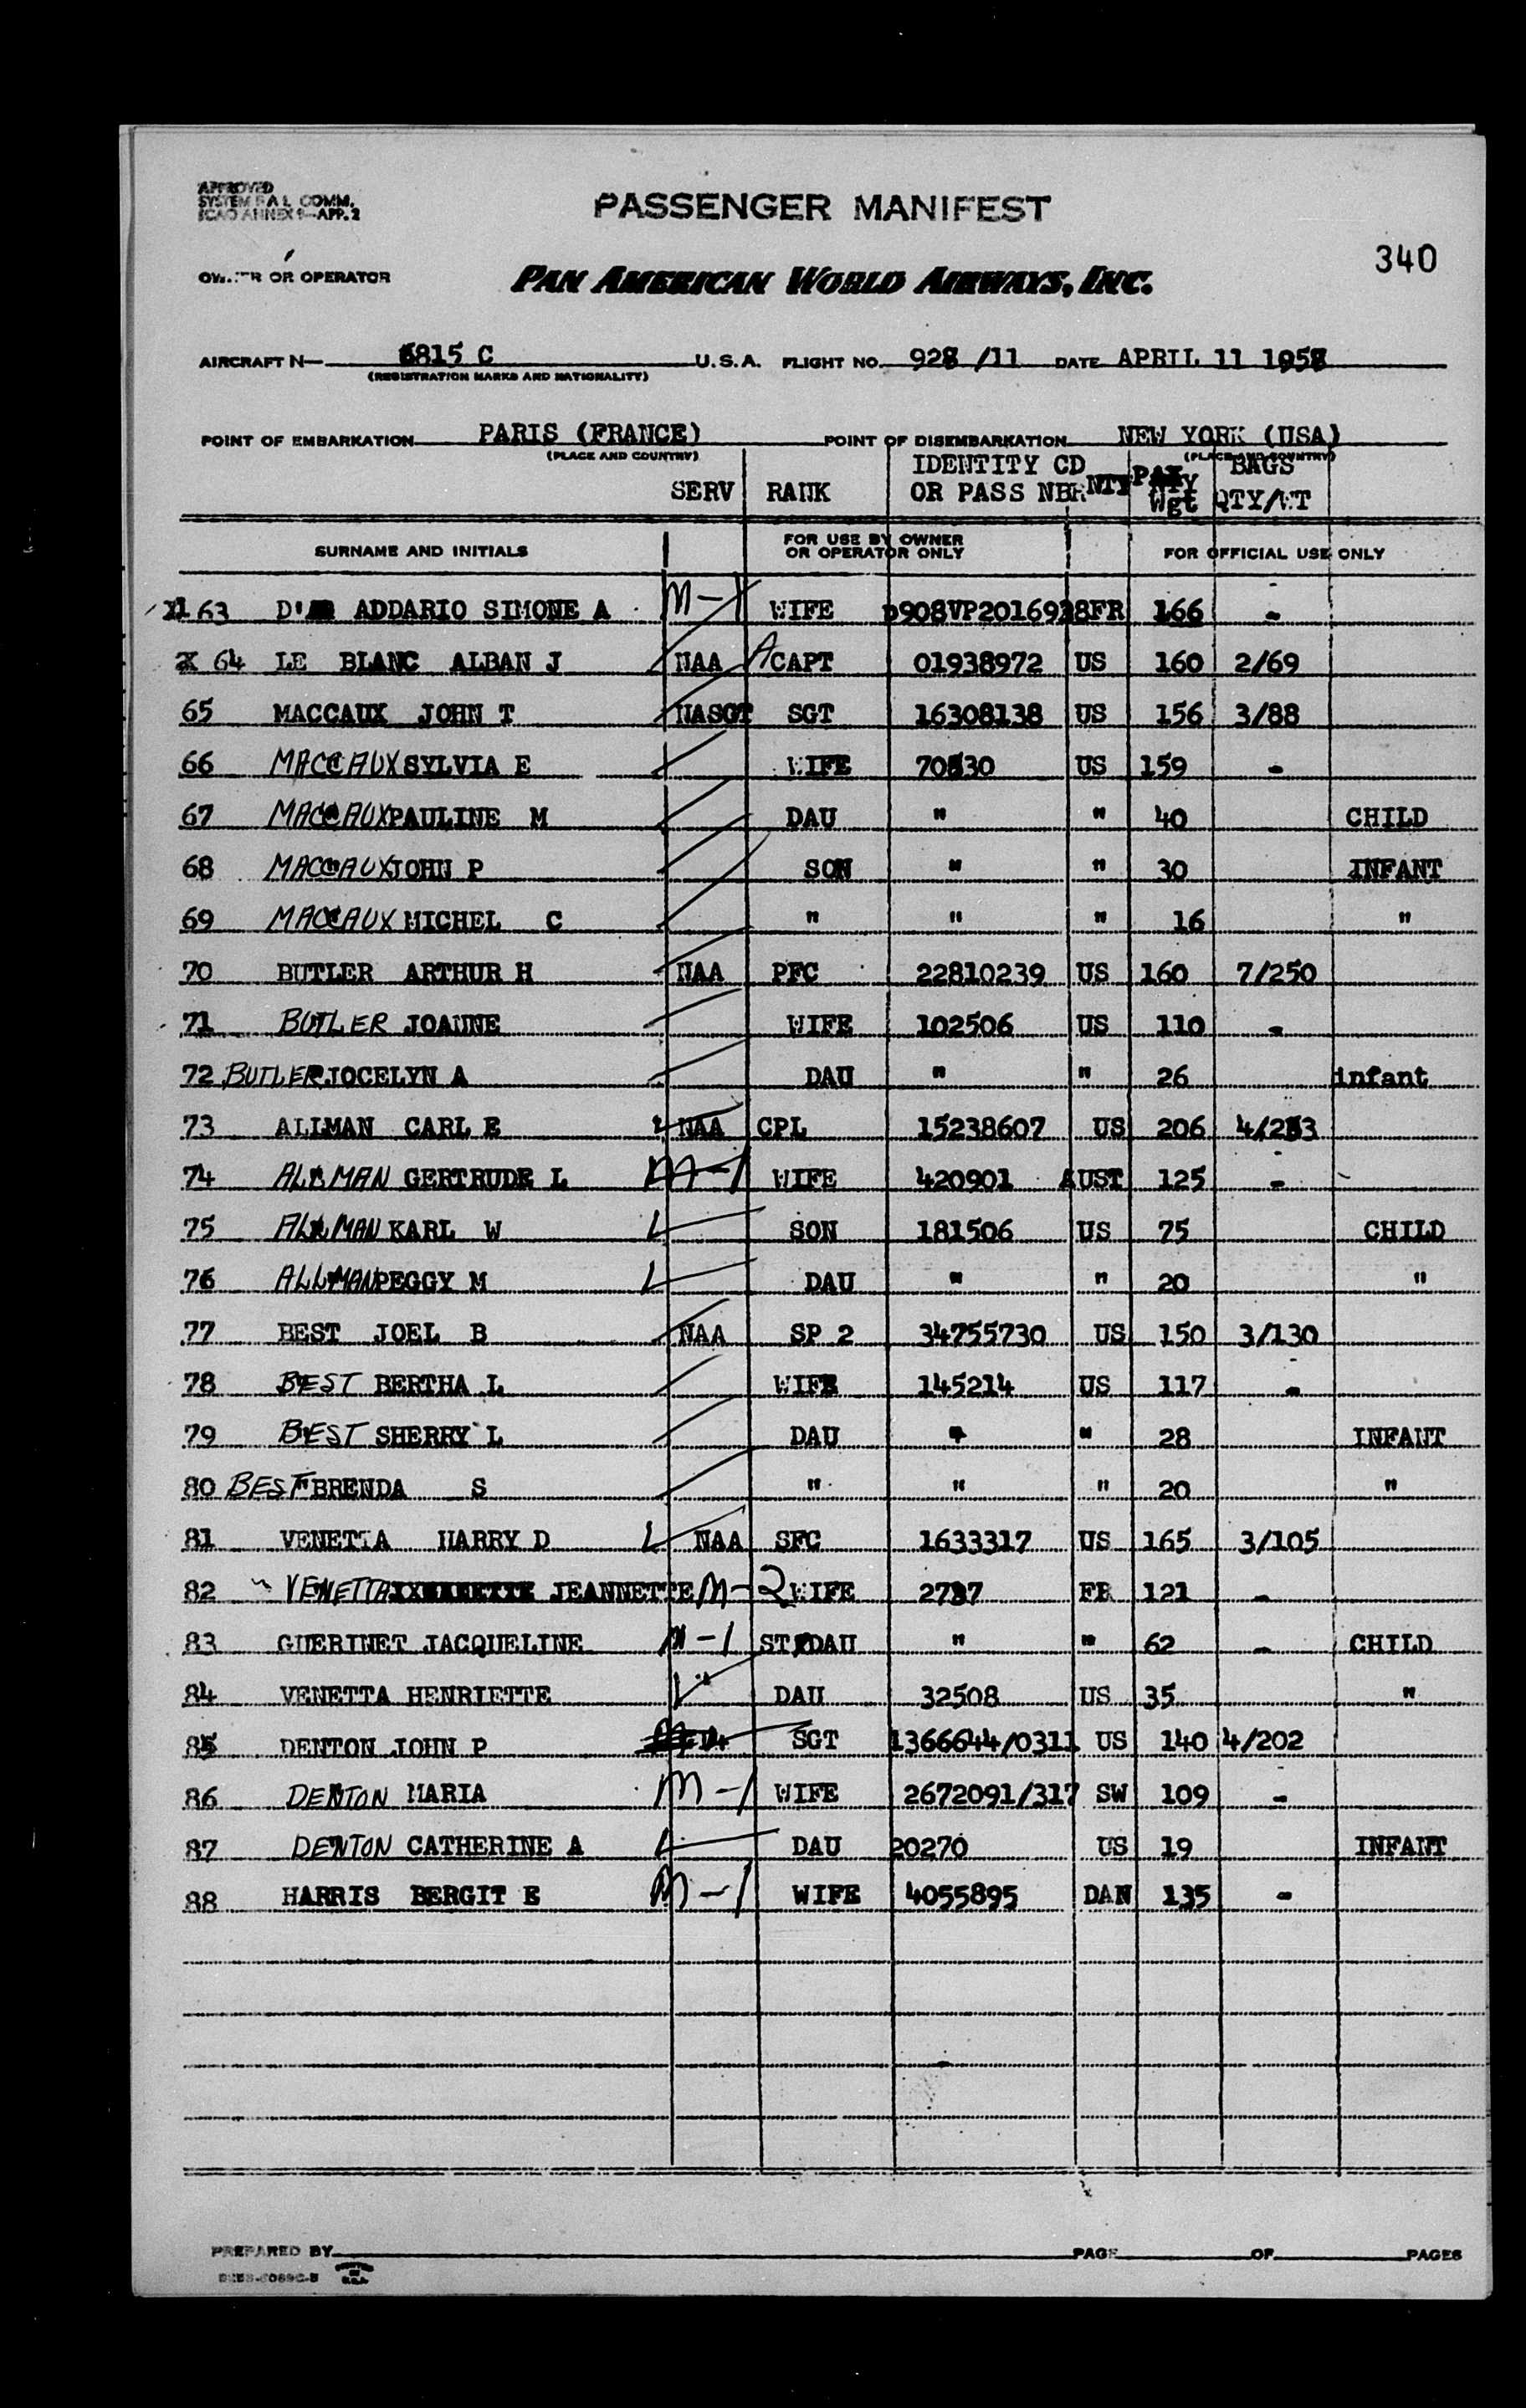 APPROVED
SYSTEM F A L COMM.
ICAO ANNEX 9—APP. 2
PASSENGER MANIFEST
340
OWNER OR OPERATOR
PAN AMERICAN WORLD AIRWAYS, INC.
AIRCRAFT N— 6815 C U.S.A. FLIGHT NO. 928 /11 DATE APRIL 11 1958
(REGISTRATION MARKS AND NATIONALITY)
POINT OF EMBARKATION PARIS (FRANCE) POINT OF DISEMBARKATION NEW YORK (USA)
(PLACE AND COUNTRY) (PLACE AND COUNTRY)
IDENTITY CD BAGS
SERV RANK OR PASS NBR NTY Wgt QTY/WT
SURNAME AND INITIALS FOR USE BY OWNER OR OPERATOR ONLY FOR OFFICIAL USE ONLY
63 D' ADDARIO SIMONE A M-1 WIFE FR 166 -
64 LE BLANC ALBAN J NAA A CAPT 01938972 US 160 2/69
65 MACCAUX JOHN T NASGT SGT 16308138 US 156 3/88
66 MACCAUX SYLVIA E WIFE US 159 -
67 MACCAUX PAULINE M DAU " " 40 CHILD
68 MACCAUX JOHN P SON " " 30 INFANT
69 MACCAUX MICHEL C " " " 16 "
70 BUTLER ARTHUR H NAA PFC 22810239 US 160 7/250
71 BUTLER JOANNE WIFE 102506 US 110 -
72 BUTLER JOCELYN A DAU " " 26 infant
73 ALLMAN CARL E NAA CPL 15238607 US 206
74 ALLMAN GERTRUDE L M-1 WIFE 420901 AUST 125 -
75 ALLMAN KARL W SON 181506 US 75 CHILD
76 ALLMAN PEGGY M DAU " " 20 "
77 BEST JOEL B NAA SP 2 34755730 US 150 3/130
78 BEST BERTHA L WIFE 145214 US 117 -
79 BEST SHERRY L DAU " " 28 INFANT
80 BEST BRENDA S " " " 20 "
81 VENETTA HARRY D NAA SFC 1633317 US 165 3/105
82 VENETTA JEANNETTE M-2 WIFE FR 121 -
83 GUERINET JACQUELINE M-1 ST DAU " " 62 - CHILD
84 VENETTA HENRIETTE DAU 32508 US 35 "
85 DENTON JOHN P SGT 1366644/0311 US 140 4/202
86 DENTON MARIA M-1 WIFE 2672091/317 SW 109 -
87 DENTON CATHERINE A DAU 20270 US 19 INFANT
88 HARRIS BERGIT E M-1 WIFE 4055895 DAN 135 -
PREPARED BY PAGE OF PAGES